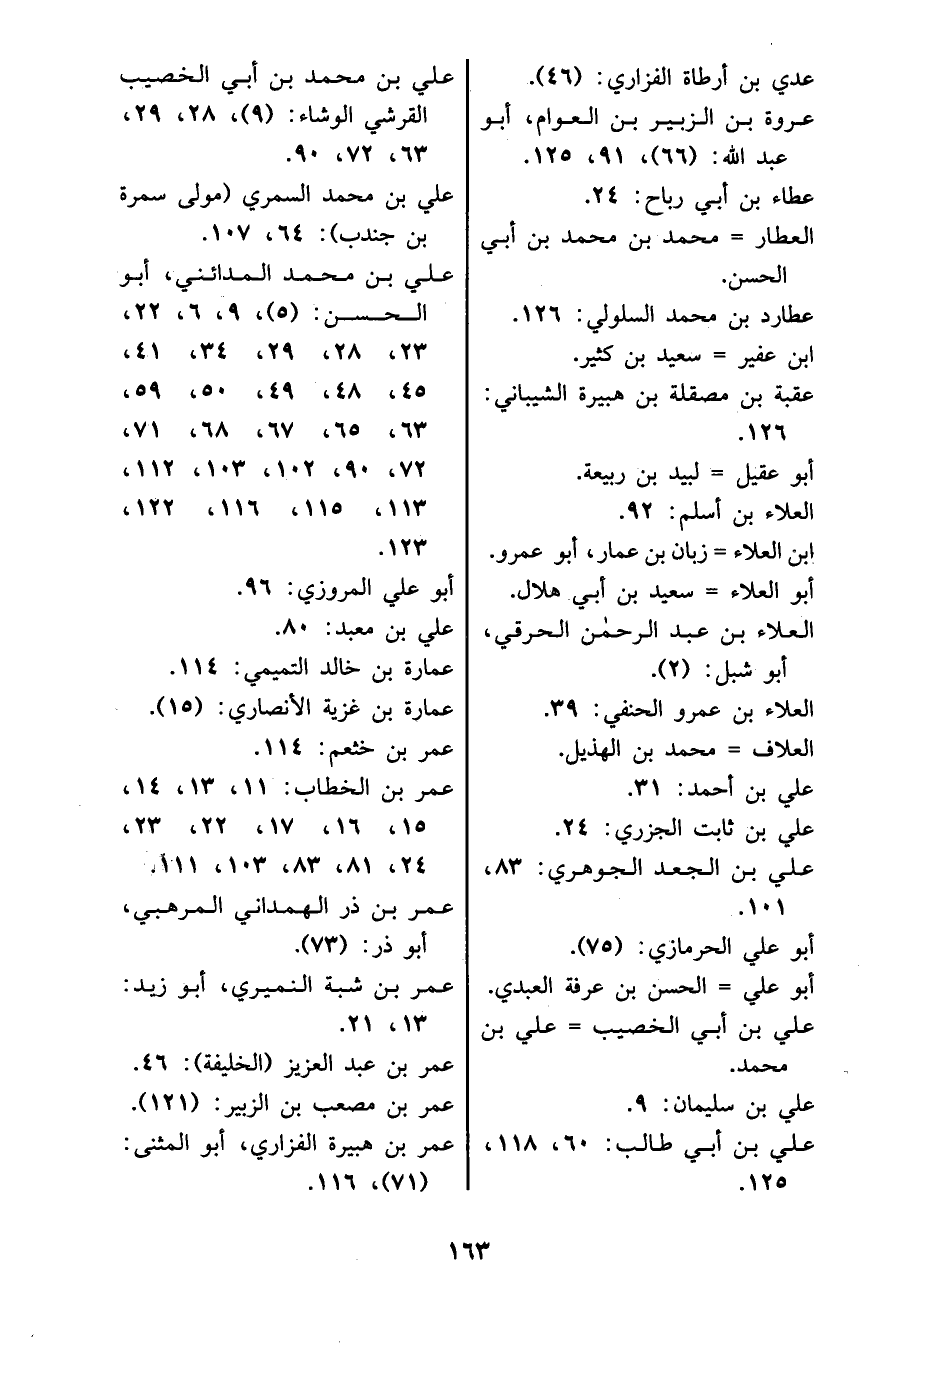 عدي بن أرطاة الفزاري: (٤٦).
عروة بن الزبير بن العوام، أبو
عبد الله: (٦٦)، ٩١، ١٢٥.
عطاء بن أبي رباح: ٢٤.
العطار = محمد بن محمد بن أبي
الحسن.
عطارد بن محمد السلولي: ١٢٦.
ابن عفير = سعيد بن كثير.
عقبة بن مصقلة بن هبيرة الشيباني:
١٢٦.
أبو عقيل = لبيد بن ربيعة.
العلاء بن أسلم: ٩٢.
ابن العلاء = زبان بن عمار، أبو عمرو.
أبو العلاء = سعيد بن أبي هلال.
العلاء بن عبد الرحمٰن الحرقي،
أبو شبل: (٢).
العلاء بن عمرو الحنفي: ٣٩.
العلاف = محمد بن الهذيل.
علي بن أحمد: ٣١.
علي بن ثابت الجزري: ٢٤.
علي بن الجعد الجوهري: ٨٣،
١٠١.
أبو علي الحرمازي: (٧٥).
أبو علي = الحسن بن عرفة العبدي.
علي بن أبي الخصيب = علي بن
محمد.
علي بن سليمان: ٩.
علي بن أبي طالب: ٦٠، ١١٨،
١٢٥.
علي بن محمد بن أبي الخصيب
القرشي الوشاء: (٩)، ٢٨، ٢٩،
٦٣، ٧٢، ٩٠.
علي بن محمد السمري (مولى سمرة
بن جندب): ٦٤، ١٠٧.
علي بن محمد المدائني، أبو
الحسن: (٥)، ٩، ٦، ٢٢،
٢٣، ٢٨، ٢٩، ٣٤، ٤١،
٤٥، ٤٨، ٤٩، ٥٠، ٥٩،
٦٣، ٦٥، ٦٧، ٦٨، ٧١،
٧٢، ٩٠، ١٠٢، ١٠٣، ١١٢،
١١٣، ١١٥، ١١٦، ١٢٢،
١٢٣.
أبو علي المروزي: ٩٦.
علي بن معبد: ٨٠.
عمارة بن خالد التميمي: ١١٤.
عمارة بن غزية الأنصاري: (١٥).
عمر بن خثعم: ١١٤.
عمر بن الخطاب: ١١، ١٣، ١٤،
١٥، ١٦، ١٧، ٢٢، ٢٣،
٢٤، ٨١، ٨٣، ١٠٣، ١١١.
عمر بن ذر الهمداني المرهبي،
أبو ذر: (٧٣).
عمر بن شبة النميري، أبو زيد:
١٣، ٢١.
عمر بن عبد العزيز (الخليفة): ٤٦.
عمر بن مصعب بن الزبير: (١٢١).
عمر بن هبيرة الفزاري، أبو المثنى:
(٧١)، ١١٦.
١٦٣